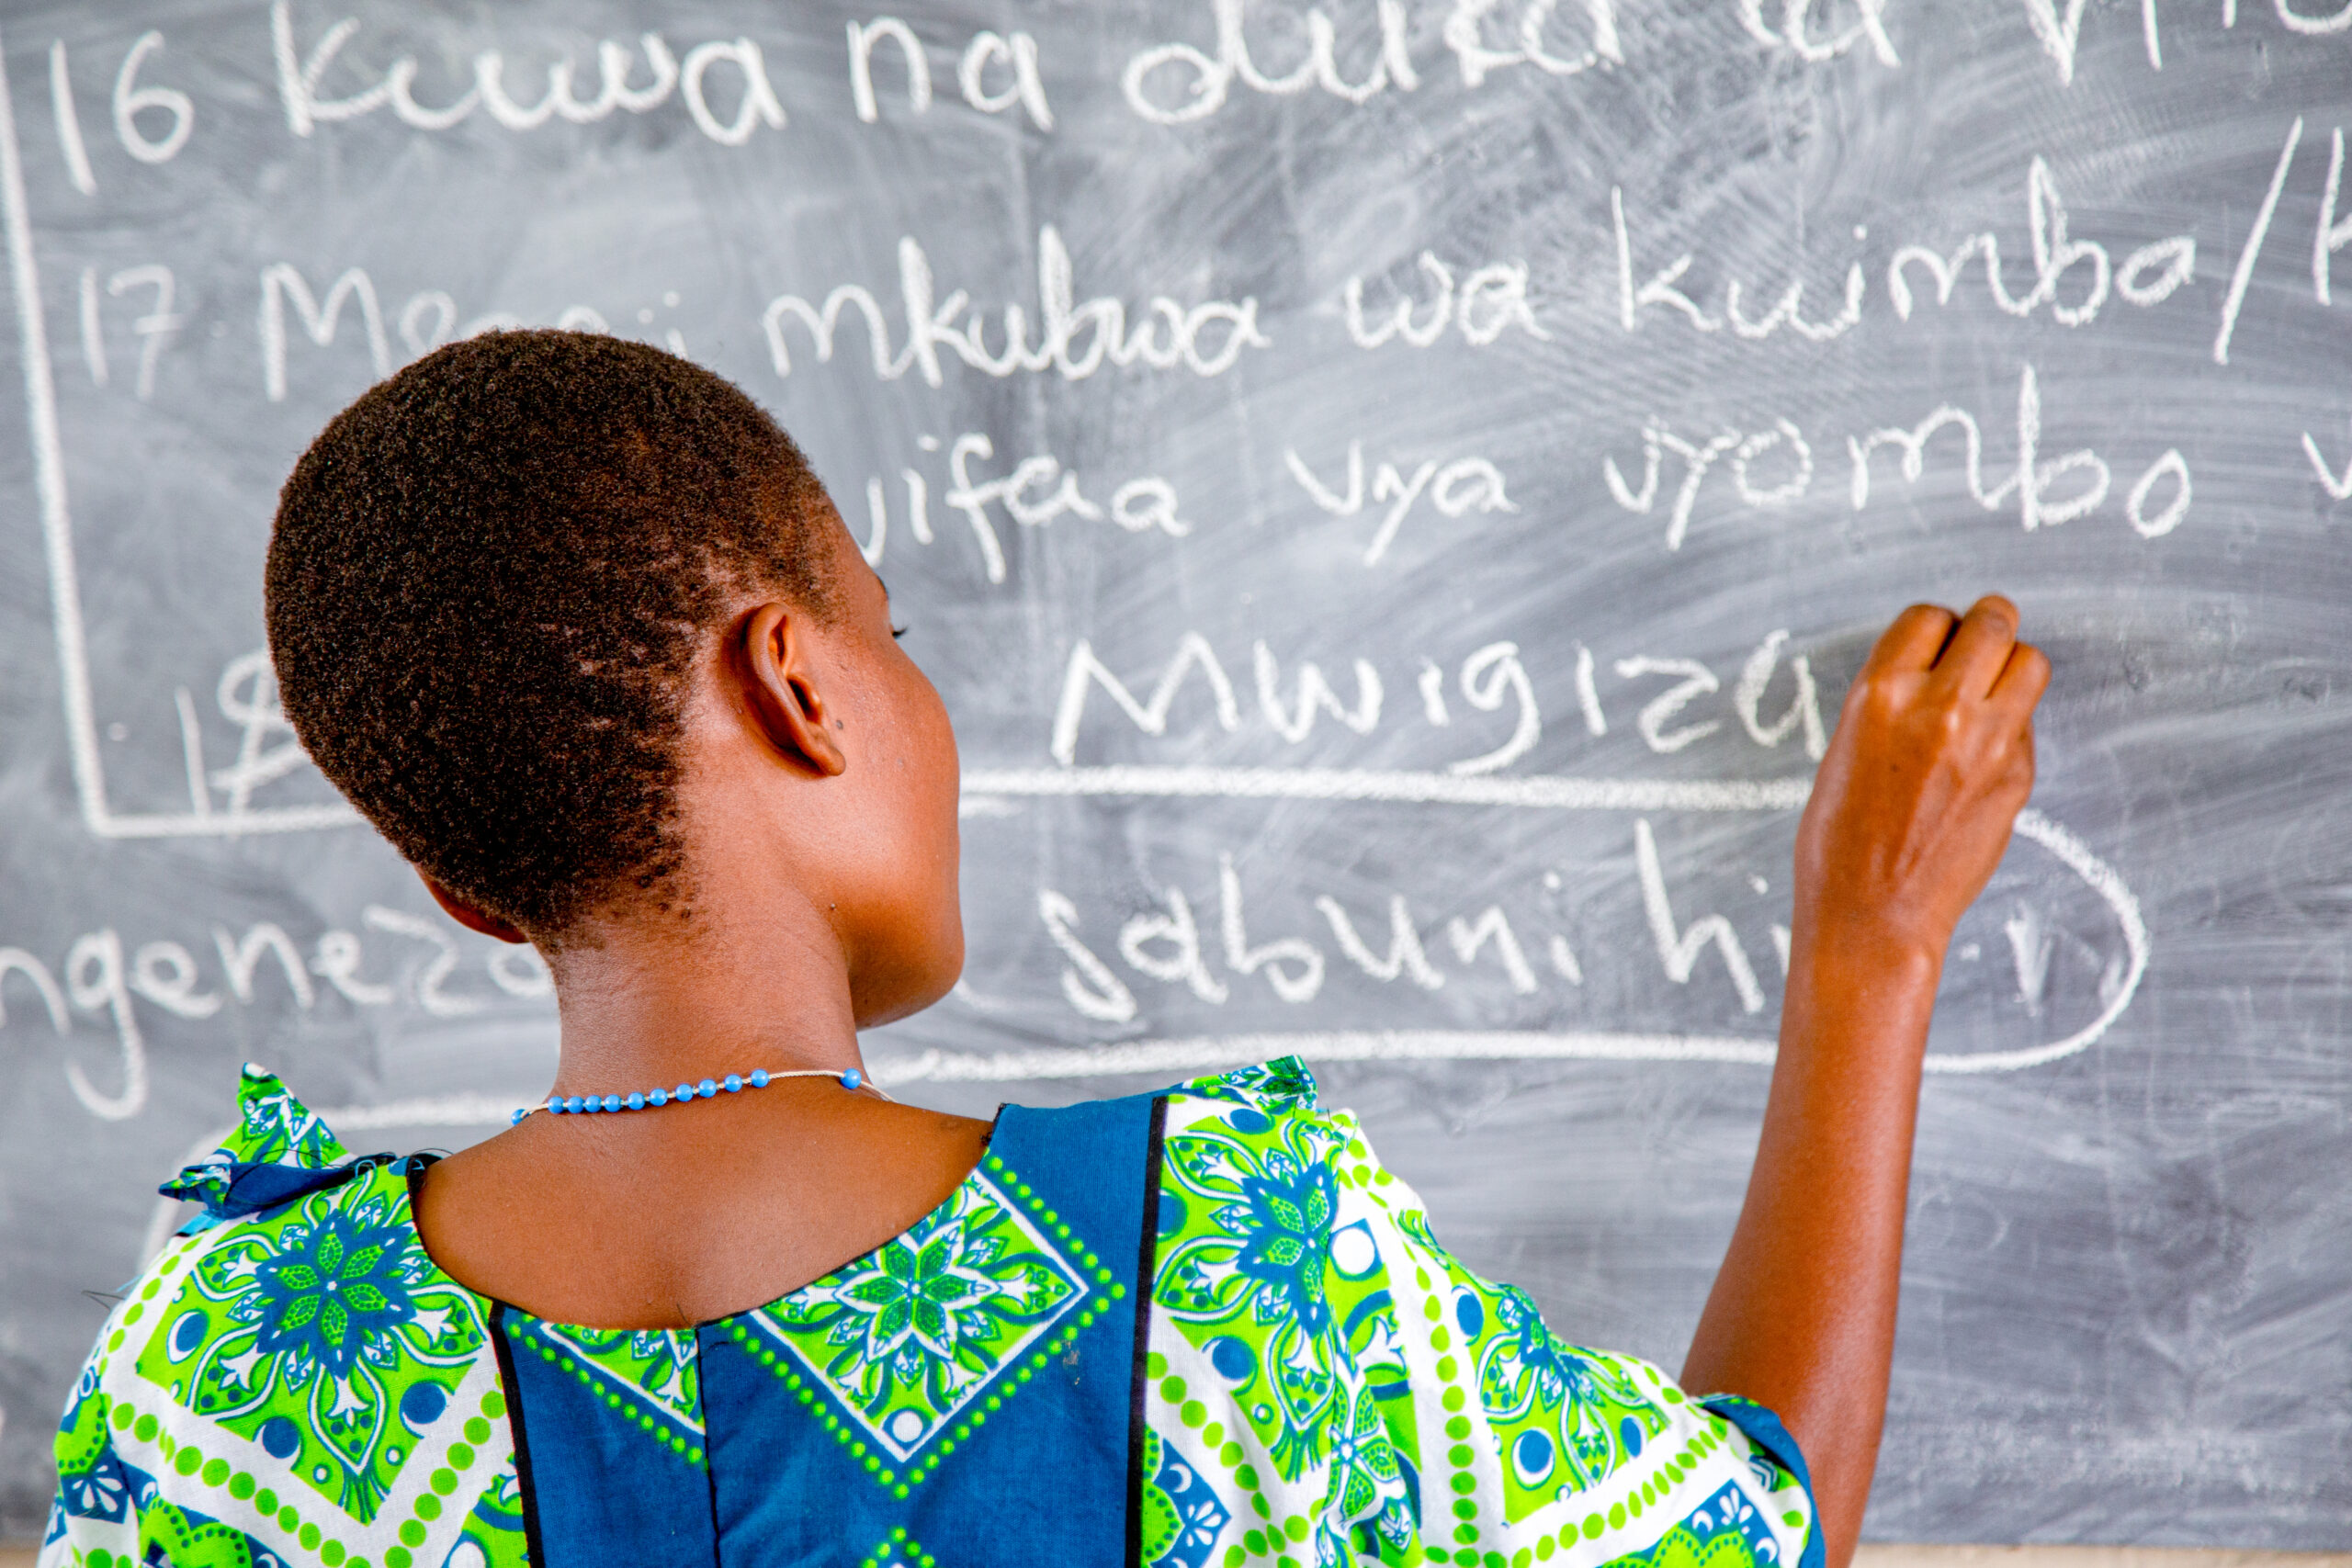 16 Kuwa na duka la
17 mkubwa wa kuimba/
vifaa vya vyombo
18 Mwigiza
ngeneza sabuni